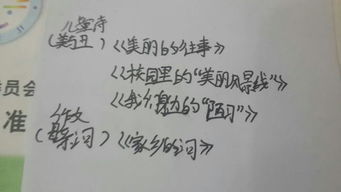 儿童诗
(美与丑)《美丽的往事》
《校园里的"美丽风景线"》
《我身边的"陋习"》
员会
准
作文
《家乡的河》